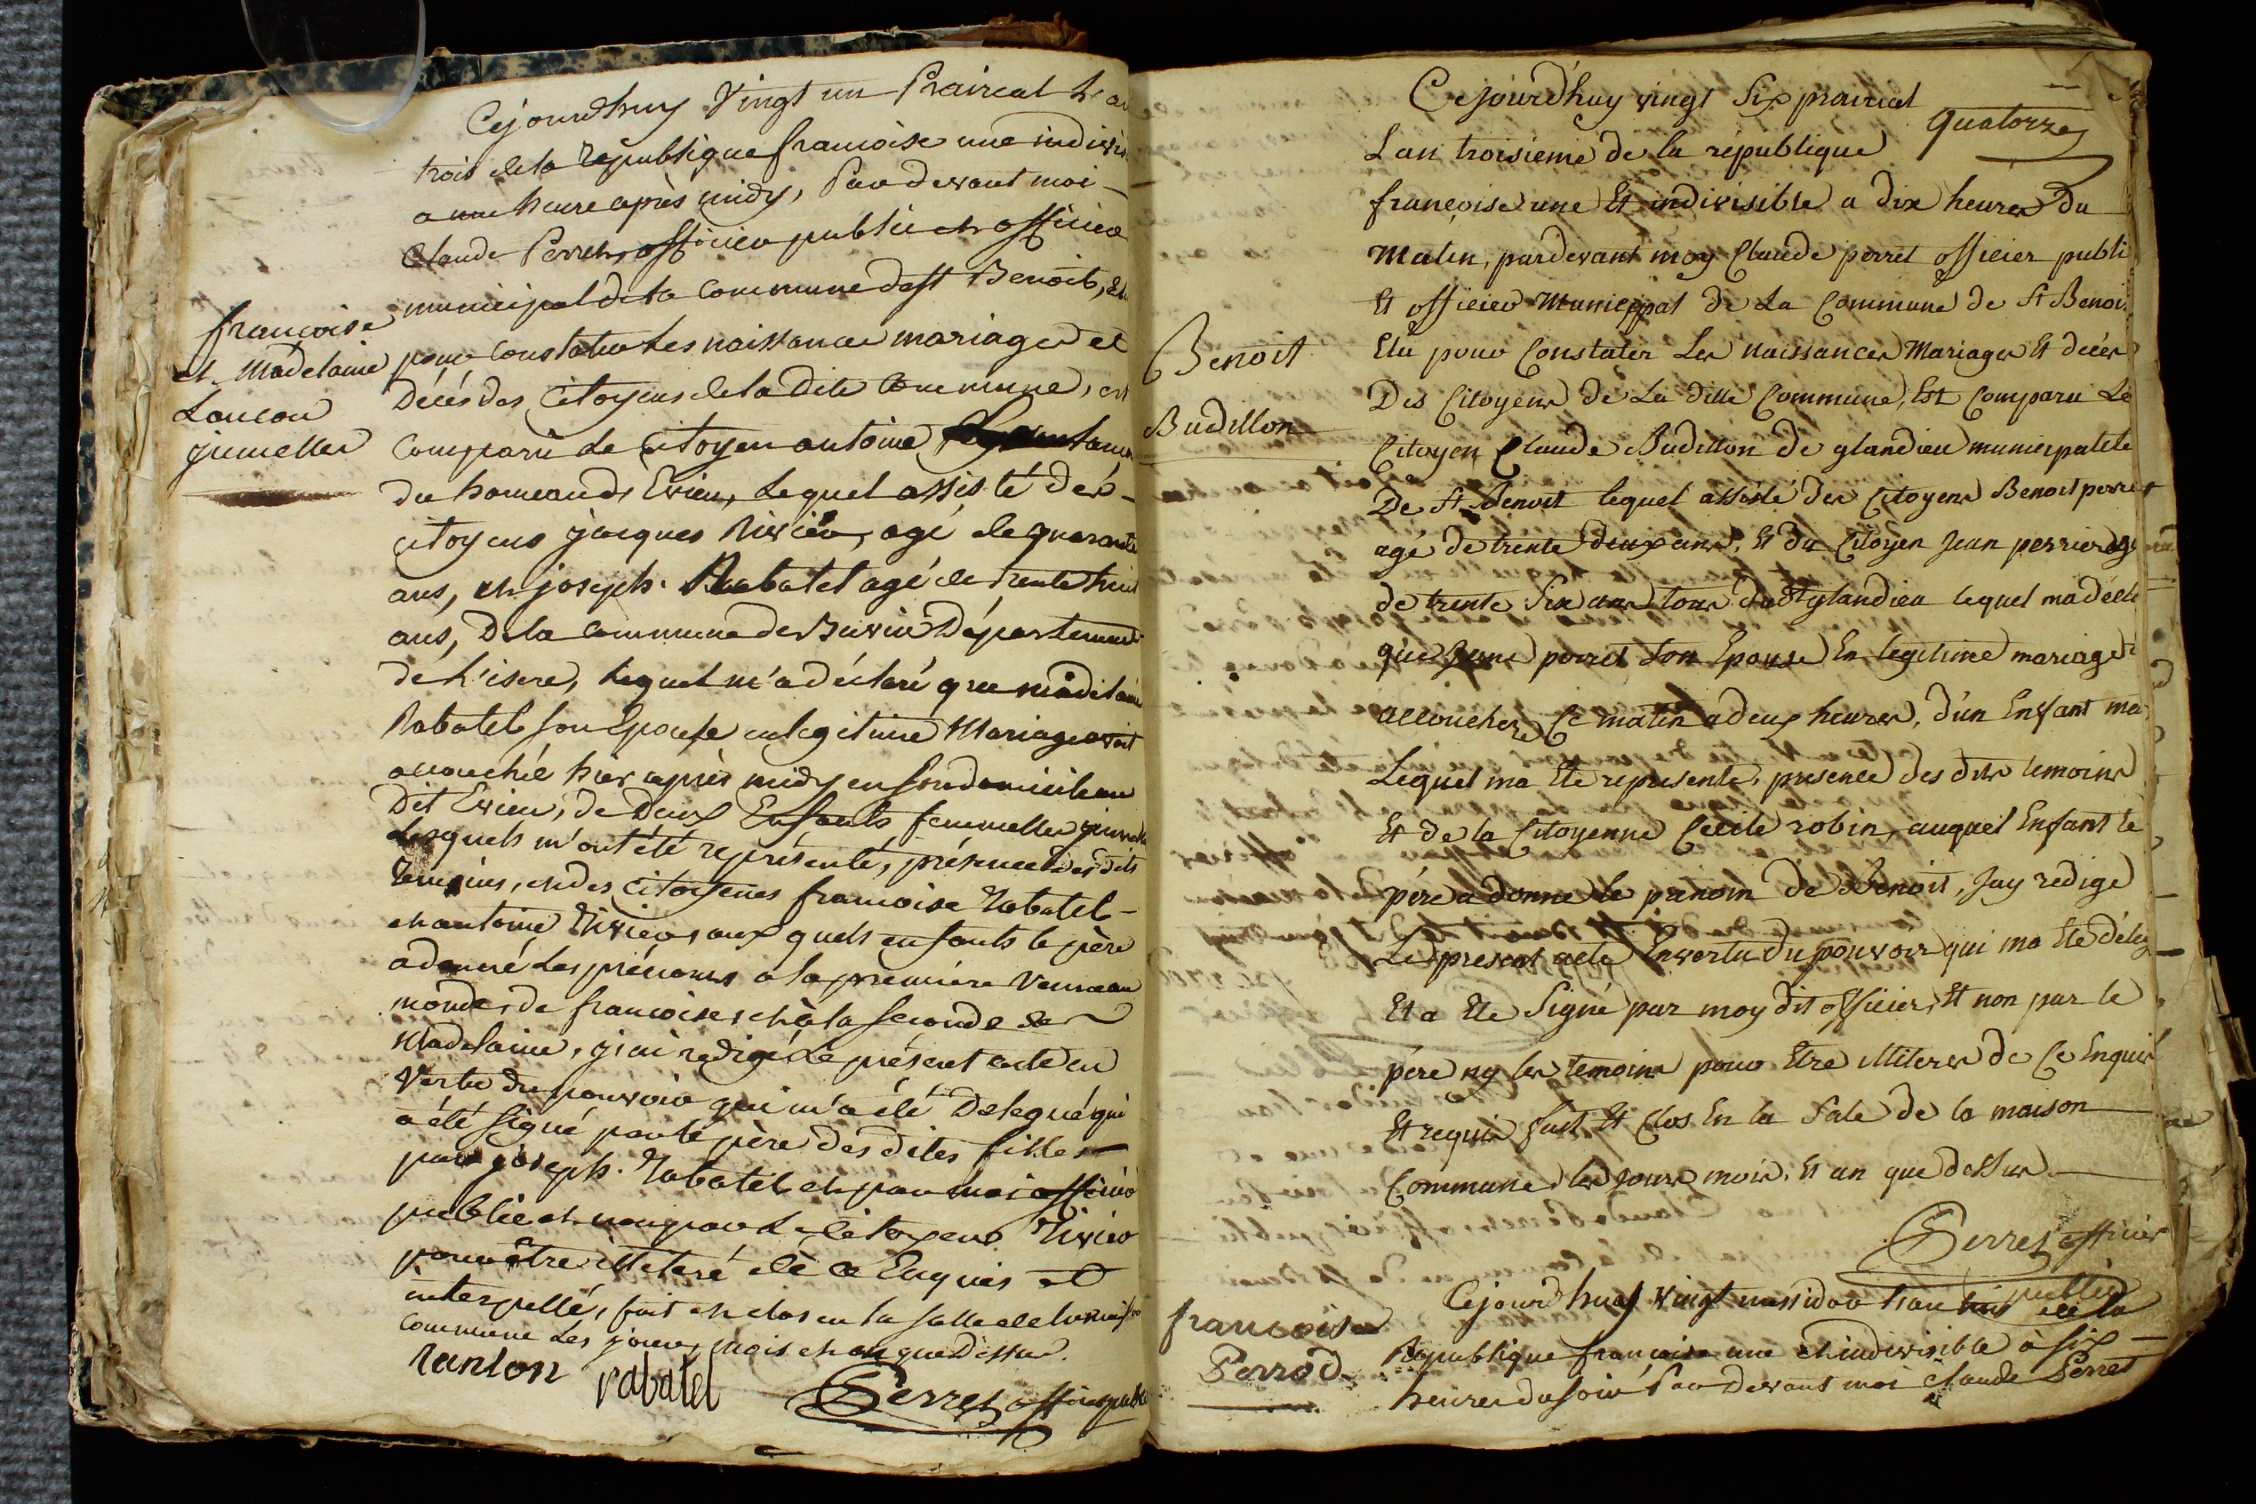 Cejourdhuy Vingt un Prairial L'an
trois de la republique francoise une indivis
a une heure après midy, Par devant moi
Claude Perret, officier public et officier
municipal de la Commune de St Benoit, élu
pour Constater Les naissances mariages et
Décés des Citoyens de la dite Commune, est
Comparu Le Citoyen antoine
du hameau d'Evieu, Lequel assisté des
citoyens jacques Rivier, agé de quarante
ans, et joseph Rabatel agé de trente huit
ans, De la Commune de Département
de L'isere, Lequel m'a déclaré que madelaine
Rabatel son Epouse en legitime Mariage avoit
accouchée hier après midy en son domicile au
Dit Evieu, de Deux Enfants femmelles
Lesquels m'ont été représenté, présence des dits
Temoins, et des Citoyenes francoise Rabatel
et antoine Rivier, aux quels enfants le père
a donné Les prénoms a la premiere Venue au
monde, de francoise, et à la seconde de
Madelaine, j'ai redigé Le présent acte en
Vertu du pouvoir qui m'a été Delegué qui
a été signé par le père des dites filles
par joseph Rabatel et par moi officier
public et non par Le Citoyen Rivier
pour être illiteré de ce Enquis et
interpellé, fait et clos en la salle de la maison
Commune Les jours, mois et an que Dessus.
Lanlon rabatel Perret officier public
francoise
et Madelaine
Lancon
jumelles
quatorze
Cejourd'huy vingt Six prairial
Lan troisieme de la république
françoise une Et indivisible a dix heures Du
Matin, pardevant moy Claude perret officier publi
Et officier Municippal de La Commune de St Benoi
Elu pour Constater Les naissances Mariages Et décès
Des Citoyens de La ditte Commune, Est Comparu Le
Citoyen Claude Budillon de glandieu municipalité
De St Benoit lequel assisté des Citoyens Benoit perret
agé de trente deux ans, Et du Citoyen Jean perrier agé
de trente Six ans tous dudt glandieu lequel ma déclé
que Jeane perret Son Epouse En legitime mariage
accouchée Ce matin a deux heures, d'un Enfant ma
Lequel ma Ete representé, presence des dits temoins
Et de la Citoyenne Cecile robin, auquel Enfant le
père a donne le prenom de Benoit, Jay redigé
Le present acte Envertu du pouvoir qui ma Ete délég
Et a Ete Signé par moy dit officier, Et non par le
père ny les temoins pour Etre illiteres de Ce Enquis
Et requis fait Et Clos En la Sale de la maison
Commune les jours mois, Et an que dessus
Perret officier
public
Benoit
Budillon
Cejourd'huy Vingt messidor L'an trois de la
Republique francoise une et indivisible à six
heures du soir Par Devant moi Claude Perret
francoise
Perrod